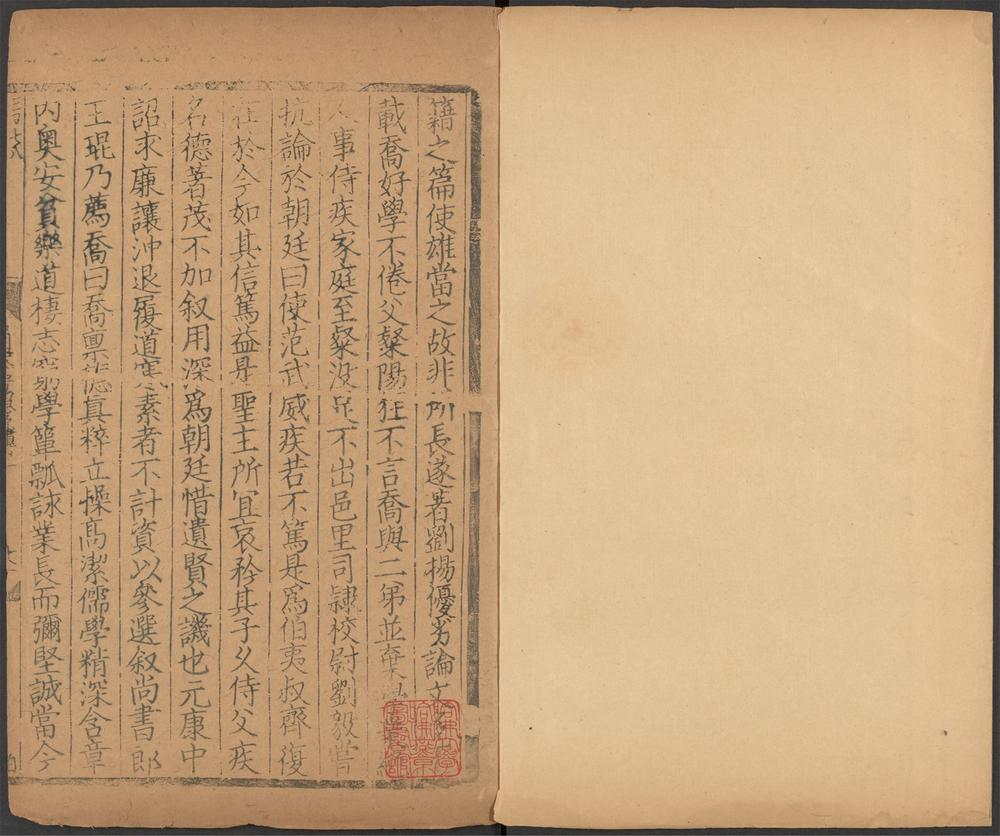 籍之篇使雄當之故非所長遂著劉揚優劣論文
載喬好學不倦父粲陽狂不言喬與二弟並棄學
人事侍疾家庭至粲没足不出邑里司隸校尉劉毅嘗
抗論於朝廷曰使范武威疾若不篤是爲伯夷叔齊復
在於今如其信篤益是聖主所宜哀矜其子久侍父疾
名德著茂不加叙用深爲朝廷惜遺賢之譏也元康中
詔求廉讓沖退履道寒素者不計資以參選叙尚書郎
王琨乃薦喬曰喬禀德真粹立操高潔儒學精深含章
内奥安貧樂道棲志窮學簞瓢詠業長而彌堅誠當今